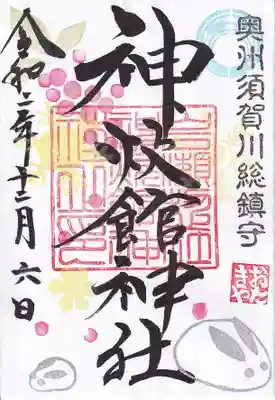 奥州須賀川総鎮守
神炊館神社
令和二年十二月六日